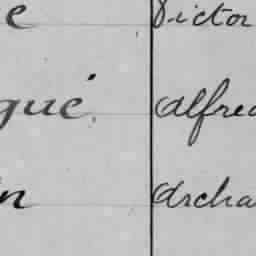 e Victor
qué. alfred
n archa